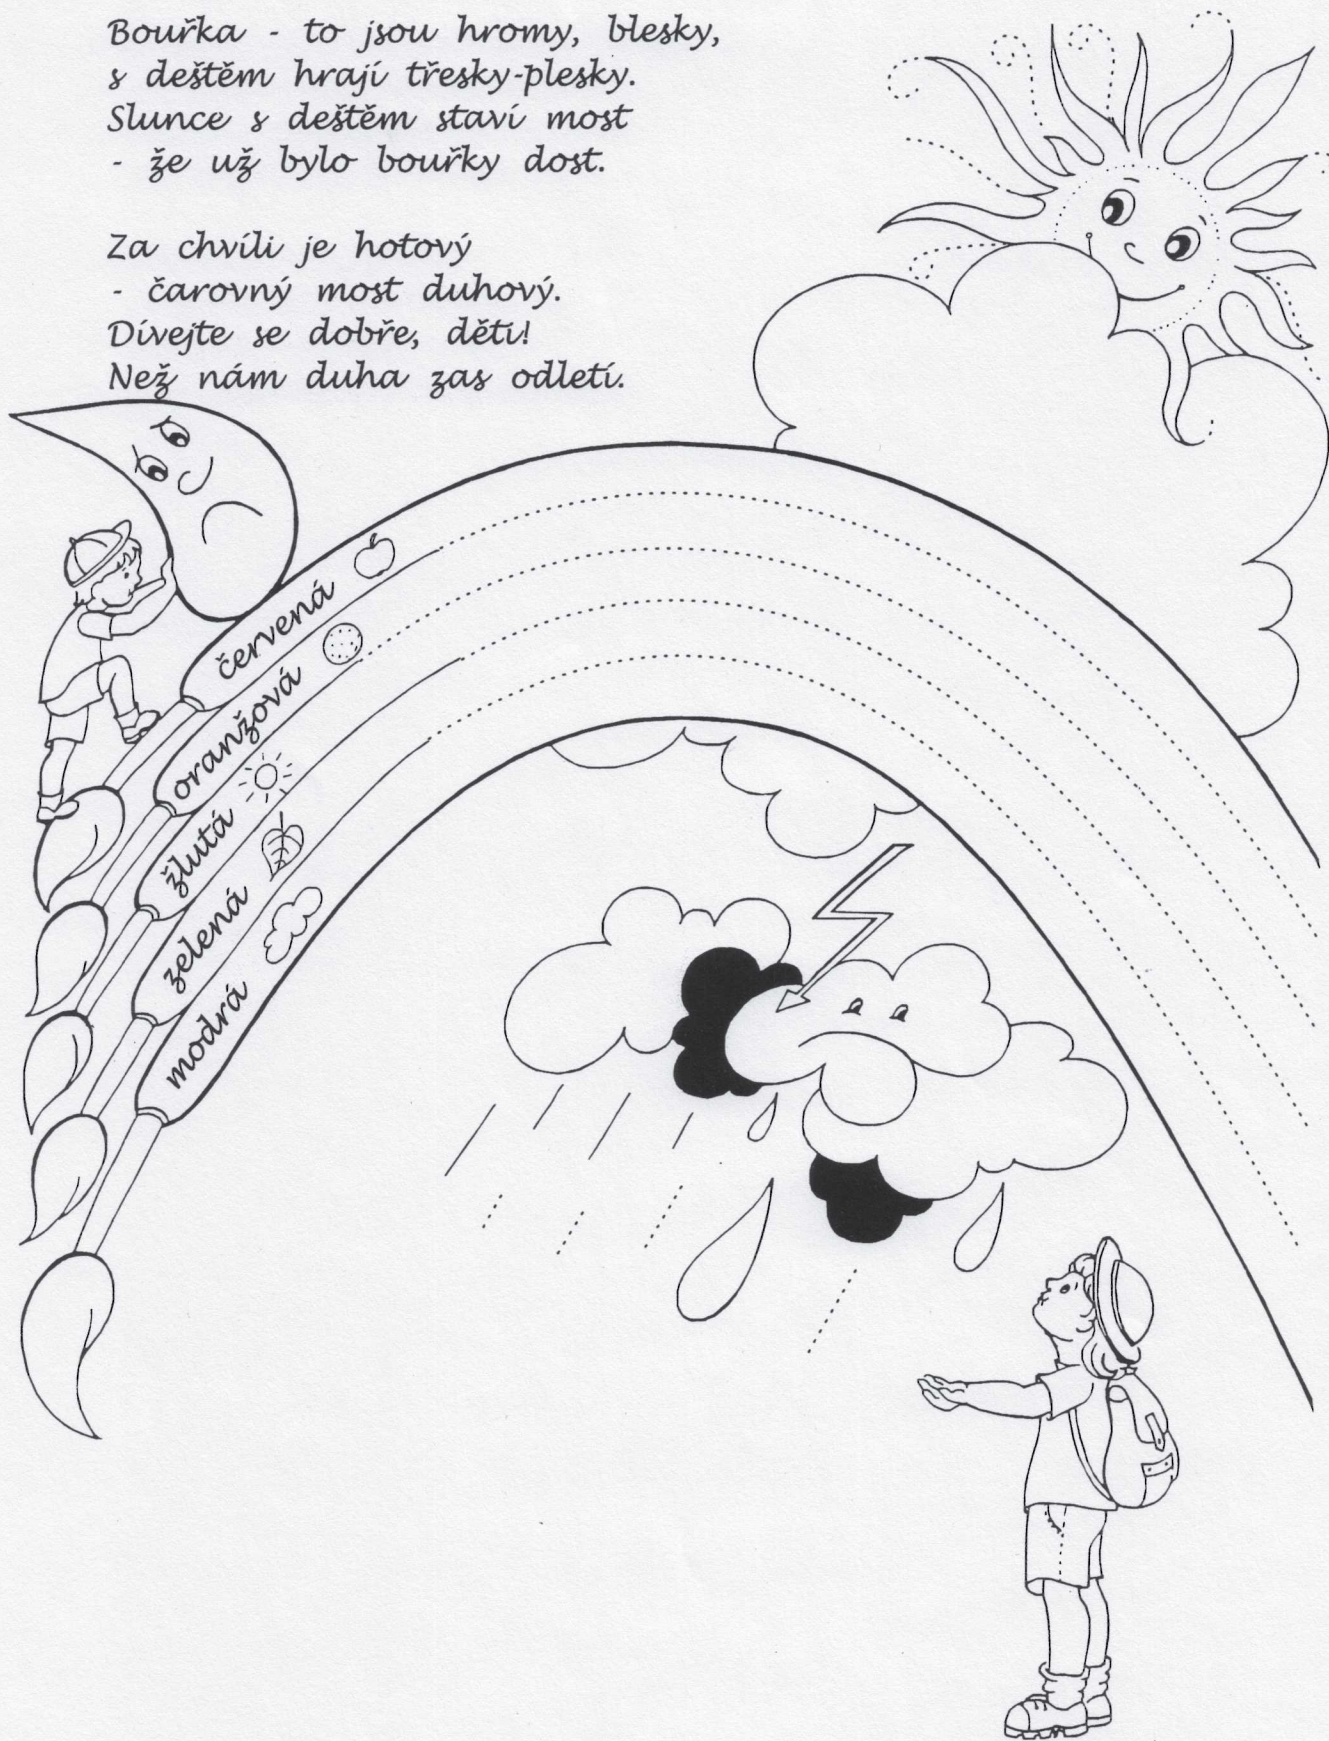 Bouřka - to jsou hromy, blesky,
s deštěm hrají třesky-plesky.
Slunce s deštěm staví most
- že už bylo bouřky dost.
Za chvíli je hotový
- čarovný most duhový.
Dívejte se dobře, děti!
Než nám duha zas odletí.
červená
oranžová
žlutá
zelená
modrá